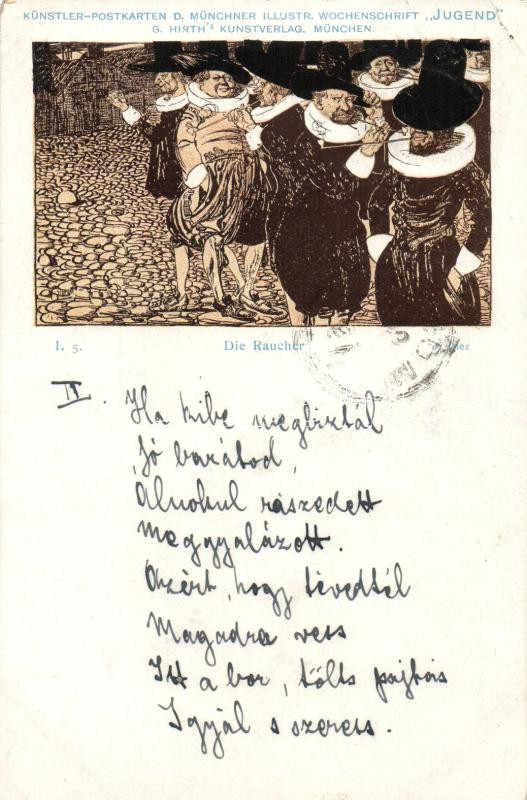 KÜNSTLER-POSTKARTEN D. MÜNCHNER ILLUSTR. WOCHENSCHRIFT „JUGEND"
G. HIRTH's KUNSTVERLAG, MÜNCHEN.
I. 5. Die Raucher
IV. Ha kibe megbíztál
Jó barátod,
Álnokul rászedett
Meggyalázott.
Azért, hogy tévedtél
Magadra vess
Itt a bor, tölts pajtás
Igyál s szeress.